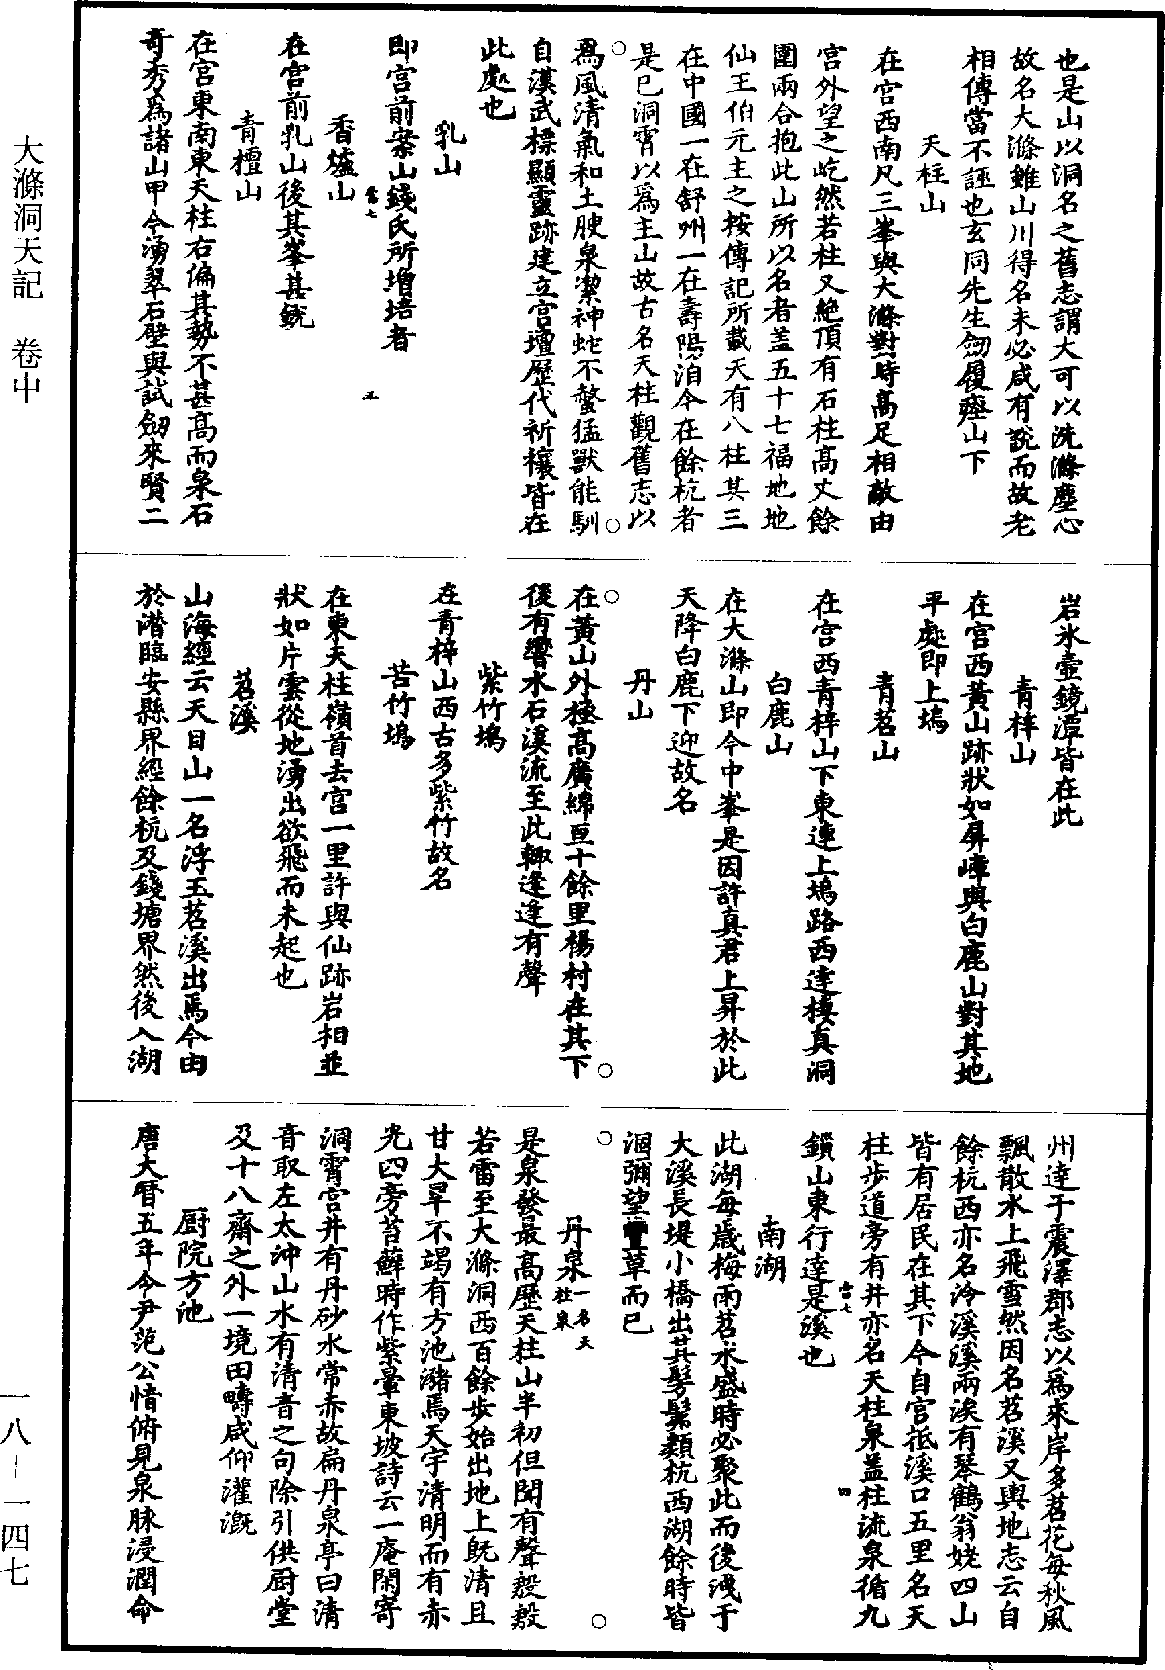 也是山以洞名之舊志謂大可以洗滌塵心
故名大滌雖山川得名未必咸有說而故老
相傳當不誣也玄同先生劒履瘞山下
天柱山
在宮西南凡三峯與大滌對峙高足相敵由
宮外望之屹然若柱又絕頂有石柱高丈餘
圍兩合抱此山所以名者盖五十七福地地
仙王伯元主之按傳記所載天有八柱其三
在中國一在舒州一在壽陽洎今在餘杭者
是已洞霄以爲主山故古名天柱觀舊志以
爲風清氣和土腴泉潔神蛇不螫猛獸能馴
自漢武標顯靈跡建立宮壇歷代祈禳皆在
此處也
乳山
即宮前案山錢氏所增培者
香爐山
在宮前乳山後其峯甚銳
青檀山
在宮東南東天柱右偏其勢不甚高而泉石
奇秀爲諸山甲今湧翠石壁與試劒來賢二
岩氷壺鏡潭皆在此
青梓山
在宮西黃山跡狀如屏嶂與白鹿山對其地
平處即上塢
青茗山
在宮西青梓山下東連上塢路西達棲真洞
白鹿山
在大滌山即今中峯是因許真君上昇於此
天降白鹿下迎故名
丹山
在黃山外極高廣綿亘十餘里楊村在其下
後有響水石溪流至此輙逢逢有聲
紫竹塢
在青梓山西古多紫竹故名
苦竹塢
在東天柱嶺首去宮一里許與仙跡岩相並
狀如片雲從地湧出欲飛而未起也
苕溪
山海經云天目山一名浮玉苕溪出焉今由
於濳臨安縣界經餘杭及錢塘界然後入湖
州達于震澤郡志以爲來岸多苕花每秋風
飄散水上飛雪然因名苕溪又輿地志云自
餘杭西亦名冷溪溪兩涘有琴鶴翁姥四山
皆有居民在其下今自宮抵溪口五里名天
柱步道旁有井亦名天柱泉盖柱流泉循九
鎖山東行達是溪也
南湖
此湖每歲梅雨苕水盛時必聚此而後洩于
大溪長堤小橋出其髣髴類杭西湖餘時皆
涸彌望豐草而已
丹泉一名天柱泉
是泉發最高歷天柱山半初但聞有聲毅毅
若雷至大滌洞西百餘步始出地上旣清且
甘大旱不竭有方池瀦焉天宇清明而有赤
光四旁苔蘚時作紫暈東坡詩云一庵閑寄
洞霄宮井有丹砂水常赤故扁丹泉亭曰清
音取左太沖山水有清音之句除引供厨堂
及十八齋之外一境田疇咸仰灌溉
厨院方池
唐大曆五年令尹范公愔俯見泉脉浸潤命
大滌洞天記　卷中
一八－一四七